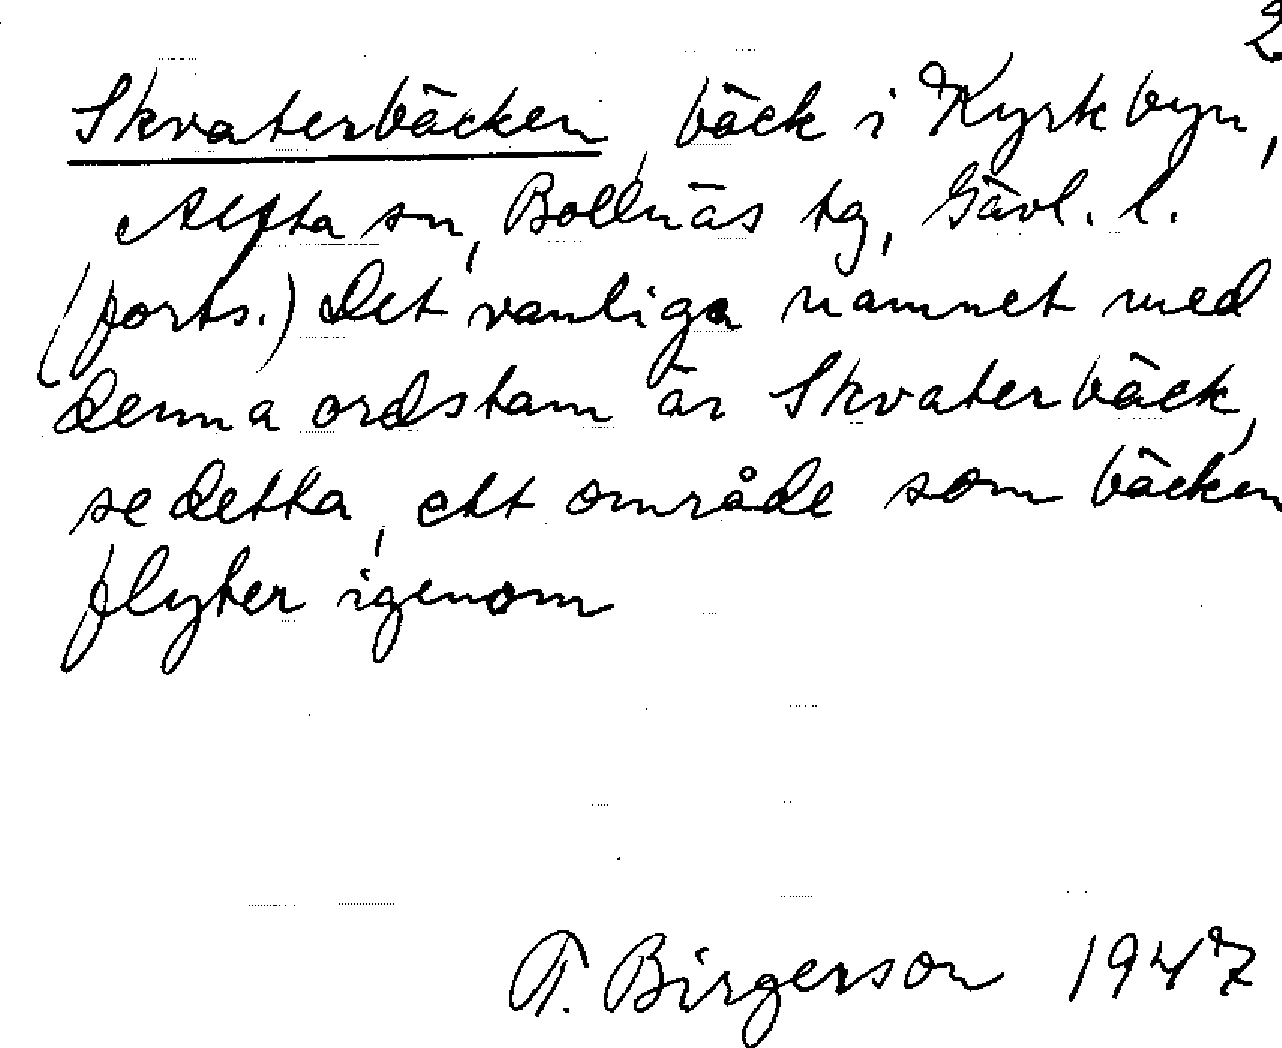 2
Skvaterbäcken, bäck i Kyrkbyn,
Alfta sn, Bollnäs tg, Gävl. l.
(forts.) Det vanliga namnet med
denna ordstam är Skvaterbäck,
se detta, ett område som bäcken
flyter igenom
T. Birgerson 1947